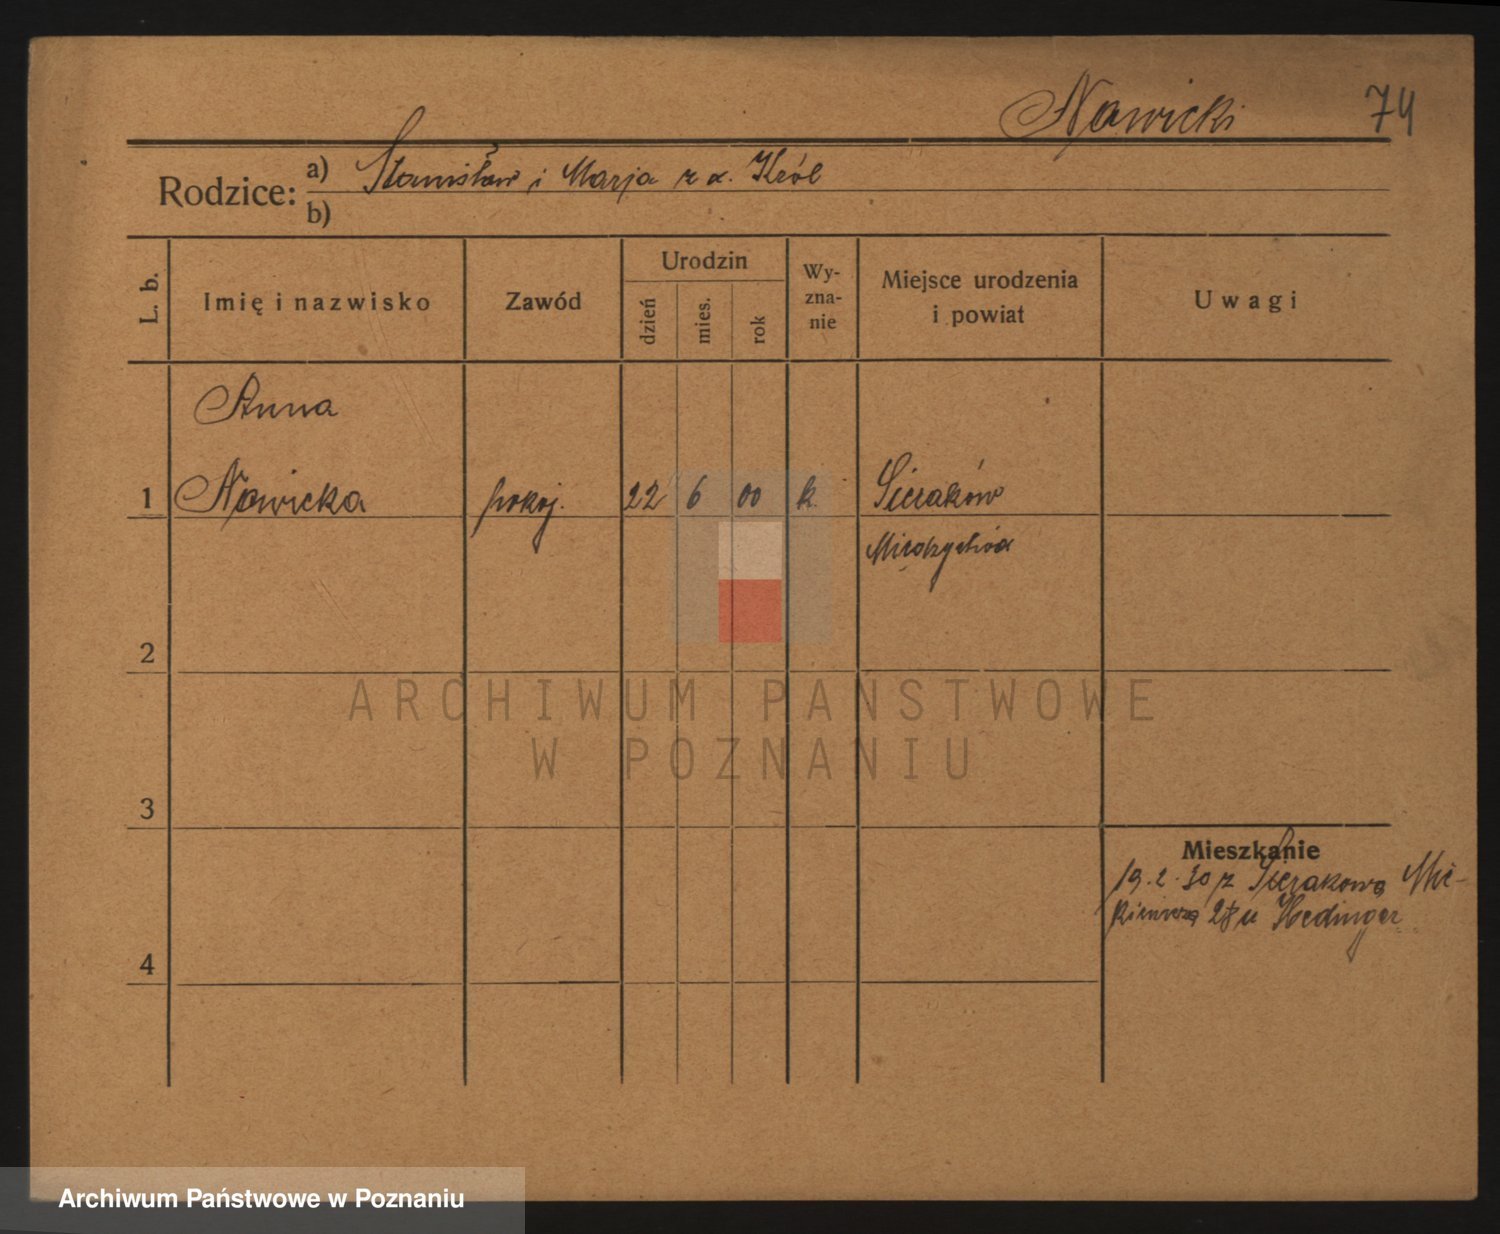 Nawicki 74
Rodzice: a) Stanisław i Marja z d. Król
b)
L. b. Imię i nazwisko Zawód Urodzin dzień mies. rok Wy-zna-nie Miejsce urodzenia i powiat Uwagi
Anna
1 Nawicka pokoj. 22 6 00 k. Sieraków
Międzychód
2
ARCHIWUM PAŃSTWOWE
W POZNANIU
3
Mieszkanie
19.2.30 z Sierakowa Mic-
kiewicza u Hedinger
4
Archiwum Państwowe w Poznaniu